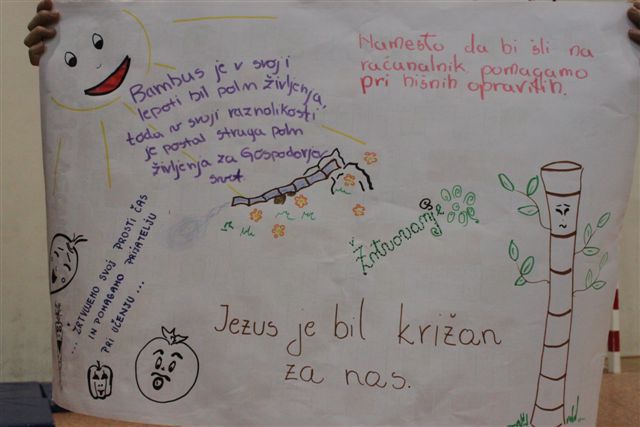 Bambus je v svoji
lepoti bil poln življenja,
toda v svoji raznolikosti
je postal struga poln
življenja za Gospodarja
svet.
Namesto da bi šli na
računalnik, pomagamo
pri hišnih opravilih.
Žrtvovanje
... ŽRTVUJEMO SVOJ PROSTI ČAS
IN POMAGAMO PRIJATELJU
PRI UČENJU ...
Jezus je bil križan
za nas.